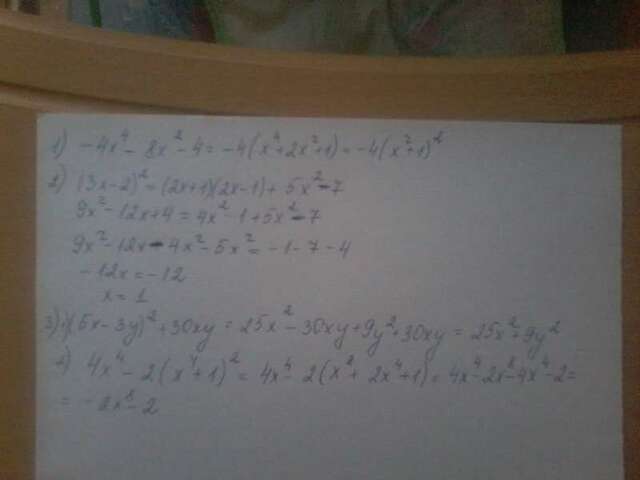 1) -4x⁴ - 8x² - 4 = -4(x⁴+2x²+1) = -4(x²+1)²
2) (3x-2)² = (2x+1)(2x-1) + 5x² - 7
9x² - 12x + 4 = 4x² - 1 + 5x² - 7
9x² - 12x - 4x² - 5x² = -1 - 7 - 4
-12x = -12
x = 1
3) 1) (5x - 3y)² + 30xy = 25x² - 30xy + 9y² + 30xy = 25x² + 9y²
2) 4x⁴ - 2(x⁴+1)² = 4x⁴ - 2(x⁸ + 2x⁴ + 1) = 4x⁴ - 2x⁸ - 4x⁴ - 2 =
= -2x⁸ - 2